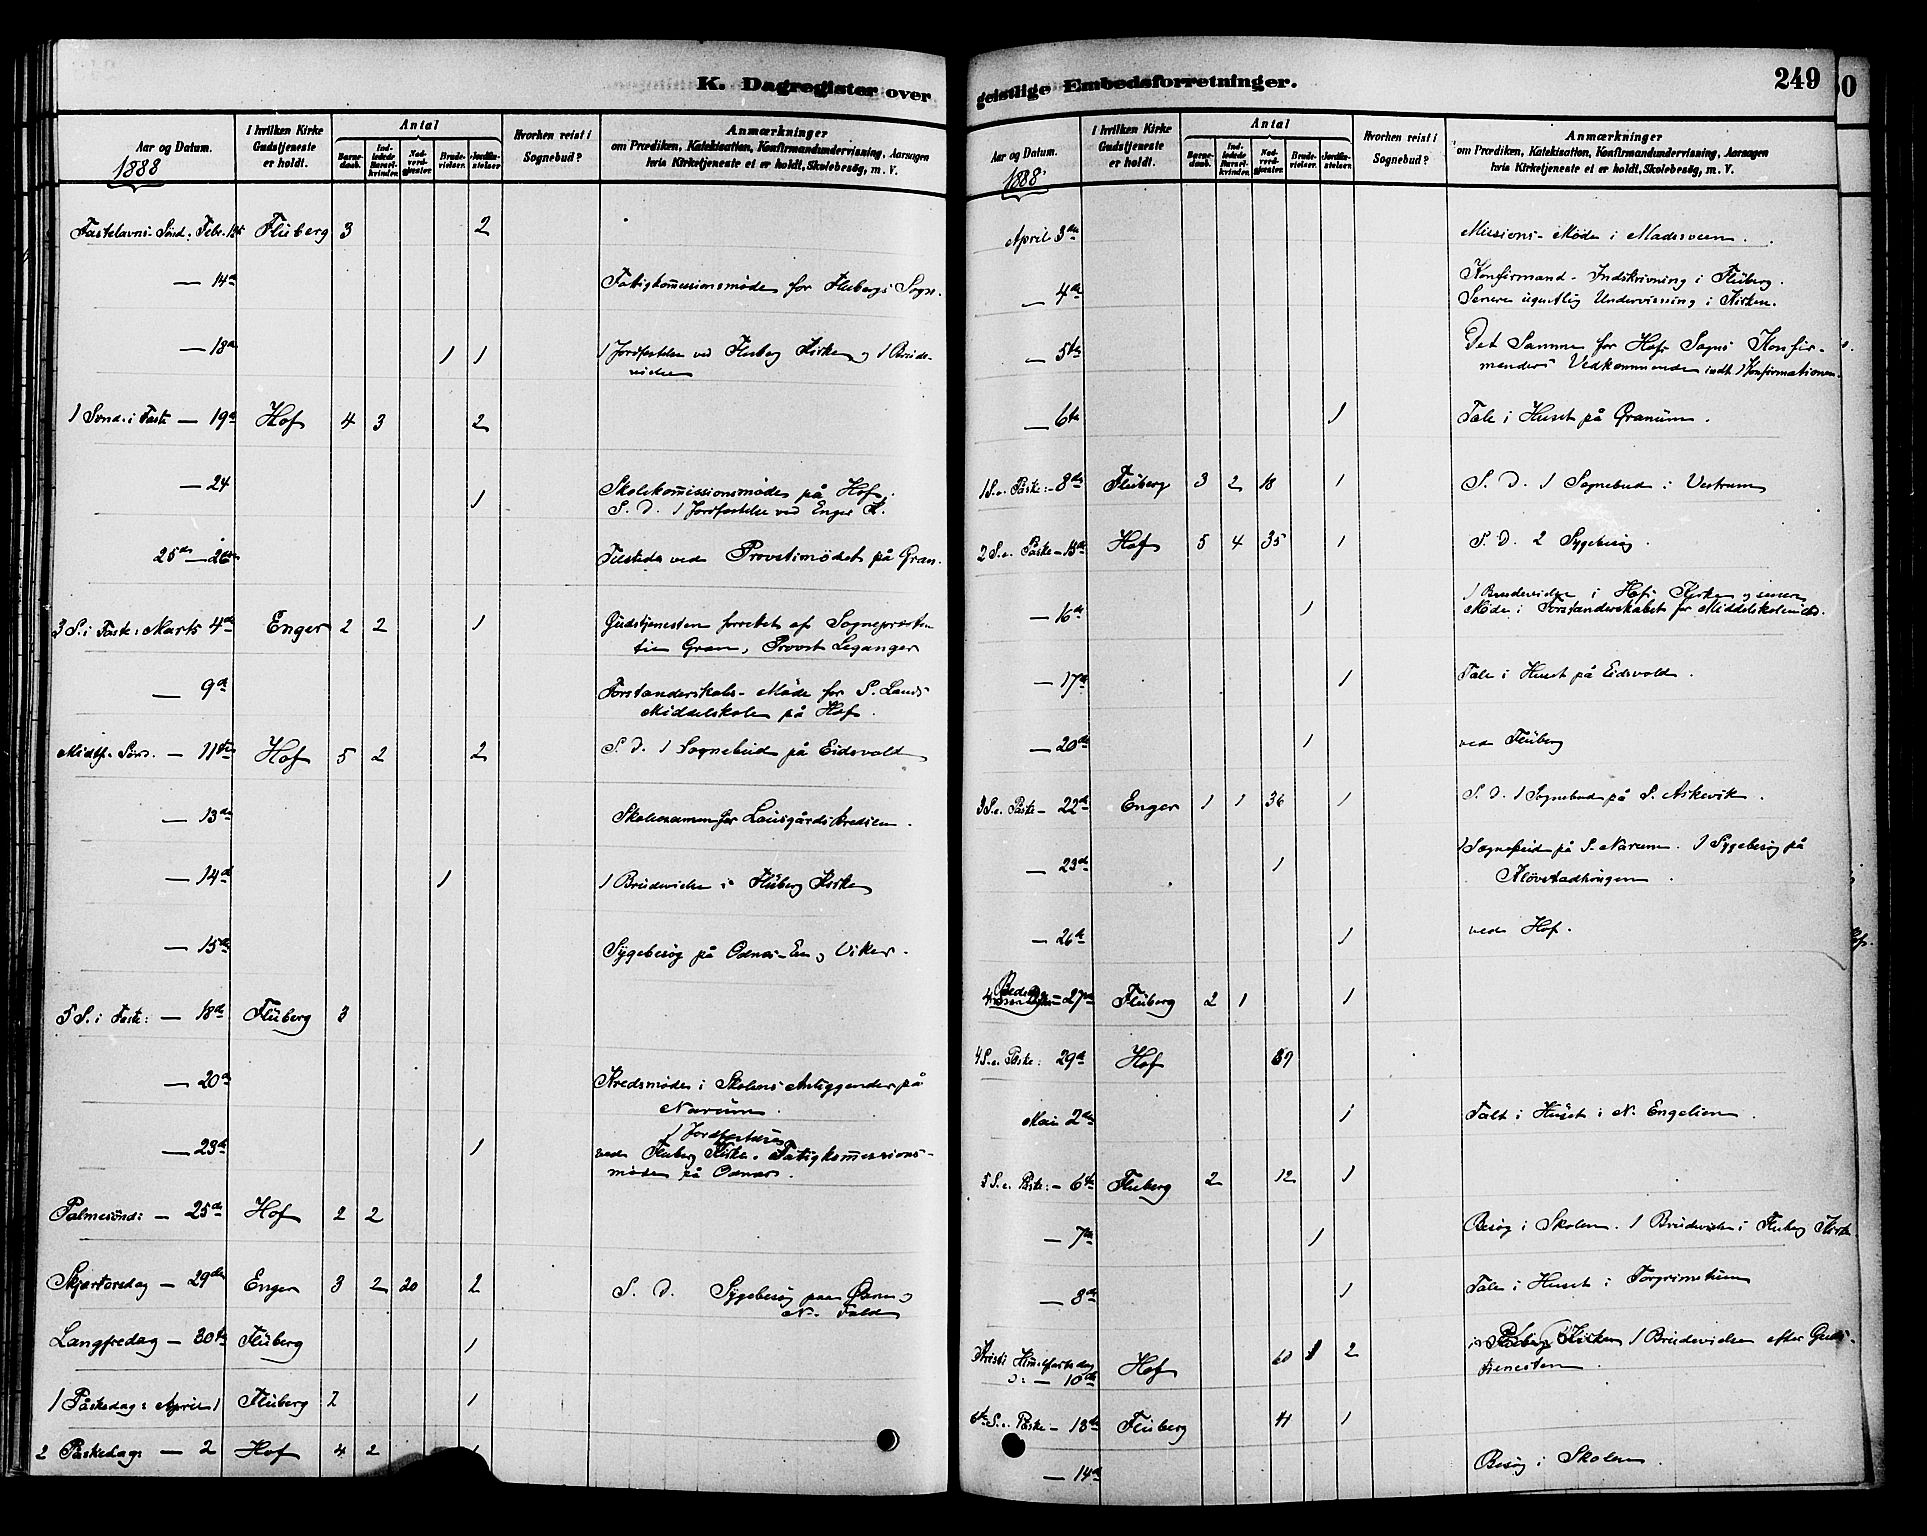 K. Dagregister over
Aar og Datum.
1888
I hvilken Kirke Gudstjeneste er holdt.
Antal
Barnedaab.
Indledede Barselkvinder.
Nadverdgjester.
Brudevielser.
Jordfæstelser.
Hvorhen reist i Sognebud?
Anmærkninger
om Prædiken, Katekisation, Konfirmandundervisning, Aarsagen
hvis Kirketjeneste ei er holdt, Skolebesøg, m. V.
Fastelavns-Sønd: Febr. Fluberg 3 2
— 14de Fatigkommissionsmøde for Flubergs Sogn.
— 18de 1 1 1 Jordfæstelse ved Fluberg Kirke og 1 Brude-
vielse
1 Sønd. i Faste — 19de Hof 4 3 2
— 24 1 Skolekommissionsmøde på Hof.
S. D. 1 Jordfæstelse ved Enger K.
25de — 26de Tilstede ved Provstimødet på Gran.
3 S. i Faste: Marts 4de Enger 2 2 1 Gudstjenesten forrettet af Sognepræsten
til Gran, Provst Leganger
— 9de Forstanderskabs-Møde for S. Lands
Middelskole på Hof.
Midtf. Sønd. — 11te Hof 5 2 2 S. D. 1 Sognebud på Eidsvold
— 13de
— 14de 1 1 Brudevielse i Fluberg Kirke
— 15de Sygebesøg på Odnæs-Eie og Viker.
5 S. i Faste: — 18de Fluberg 3
— 20de Kredsmøde i Skolens Anliggender på
Narum.
— 23de 1 1 Jordfæstelse
ved Fluberg Kirke. Fatigkommissions-
møde på Odnæs.
Palmesønd: — 25de Hof 2 2
Skjærtorsdag — 29de Enger 3 2 20 2 S. D. Sygebesøg paa
N. Fald
Langfredag — 30te Fluberg 1
1 Påskedag: April 1 Fluberg 2 1
2 Påskedag: — 2 Hof 4 2 1
geistlige Embedsforretninger.
249
Aar og Datum.
1888
I hvilken Kirke Gudstjeneste er holdt.
Antal
Barnedaab.
Indledede Barselkvinder.
Nadverdgjester.
Brudevielser.
Jordfæstelser.
Hvorhen reist i Sognebud?
Anmærkninger
om Prædiken, Katekisation, Konfirmandundervisning, Aarsagen
hvis Kirketjeneste ei er holdt, Skolebesøg, m. V.
April 3de Missions-Møde i Madsveen.
— 4de Konfirmand-Indskrivning i Fluberg.
Senere ugentlig Undervisning i Kirken.
— 5te Det Samme for Hofs Sogns Konfir-
manders Vedkommende indt. Konfirmationen.
— 6te 1 Tale i Huset på Granum.
1 S. e. Påske: — 8de Fluberg 3 2 18 1 S. D. 1 Sognebud i Vestrum
2 S. e. Påske — 15de Hof 5 4 35 1 S. D. 2 Sygebesøg.
— 16de 1 1 Brudevielse i Hofs Kirke og senere
Møde i Forstanderskabet for Middelskolen
— 17de 1 Tale i Huset på Eidsvold.
— 20de 1 ved Fluberg
3 S. e. Påske — 22de Enger 1 1 36 1 S. D. 1 Sognebud på S. Askevik.
— 23de 1 1 Sognebud på S. Narum. 1 Sygebesøg på
Kløvstadhaugen.
— 26de 1 ved Hof.
Bededag — 27de Fluberg 2 1 1
4 S. e. Påske: 29de Hof 59
Mai 2de 1 Talt i Huset i N. Engelien.
5 S. e. Påske: — 6te Fluberg 2 12 1
— 7de 1 Besøg i Skolen. 1 Brudevielse i Fluberg Kirke
— 8de 1 Tale i Huset i Torgrimstuen
Kristi Himmelfartsdag
— 10de Hof 60 1 2 i Kirken 1 Brudevielse efter Guds-
tjenesten.
6te S. e. Påske — 13de Fluberg 41 1
— 14de Besøg i Skolen.